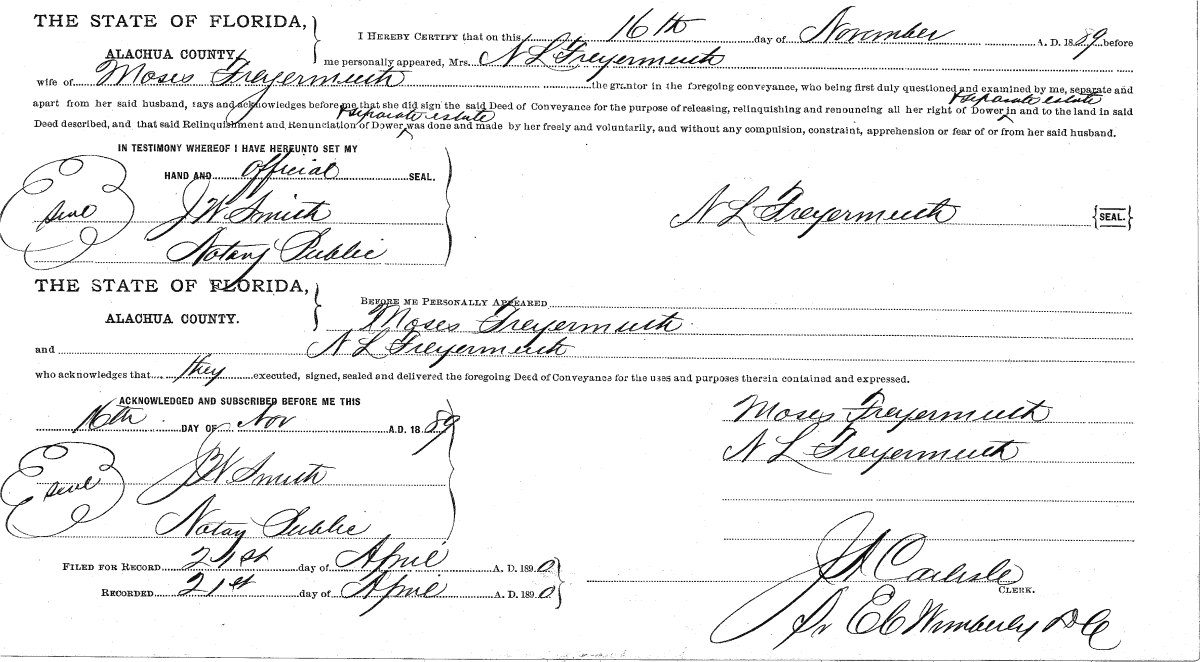 THE STATE OF FLORIDA,
ALACHUA COUNTY,
I HEREBY CERTIFY that on this 16th day of November A. D. 1889 before
me personally appeared, Mrs. N L Freyermuth
wife of Moses Freyermuth the grantor in the foregoing conveyance, who being first duly questioned and examined by me, separate and
+ separate estate
apart from her said husband, says and acknowledges before me that she did sign the said Deed of Conveyance for the purpose of releasing, relinquishing and renouncing all her right of Dower in and to the land in said
+ separate estate
Deed described, and that said Relinquishment and Renunciation of Dower was done and made by her freely and voluntarily, and without any compulsion, constraint, apprehension or fear of or from her said husband.
IN TESTIMONY WHEREOF I HAVE HEREUNTO SET MY
HAND AND official SEAL.
Seal J W Smith
Notary Public
N L Freyermuth {SEAL.}
THE STATE OF FLORIDA,
ALACHUA COUNTY.
BEFORE ME PERSONALLY APPEARED
Moses Freyermuth
and N L Freyermuth
who acknowledges that they executed, signed, sealed and delivered the foregoing Deed of Conveyance for the uses and purposes therein contained and expressed.
ACKNOWLEDGED AND SUBSCRIBED BEFORE ME THIS
16th DAY OF Nov A.D. 1889
Seal J W Smith
Notary Public
Moses Freyermuth
N L Freyermuth
FILED FOR RECORD 21st day of April A. D. 1890
RECORDED 21st day of April A. D. 1890
Carlisle
CLERK.
E C Wimberly D C